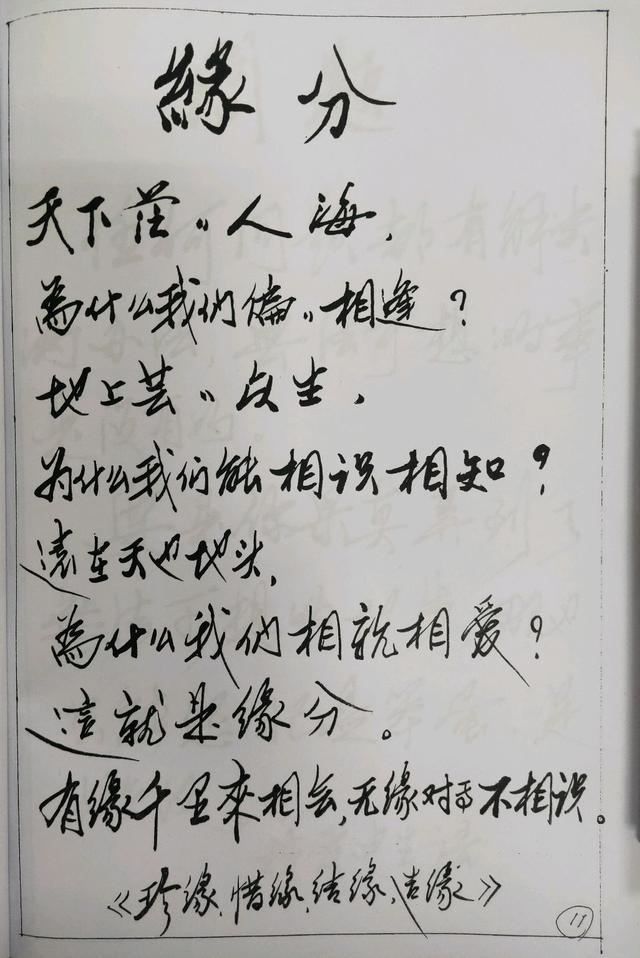 緣分
天下茫〃人海,
為什么我们偏〃相逢?
地上芸〃众生,
为什么我们能相识相知?
遠在天边地头,
為什么我們相就相爱?
這就是缘分。
有缘千里來相会,无缘对面不相识。
《珍缘、惜缘、结缘、缘》
11